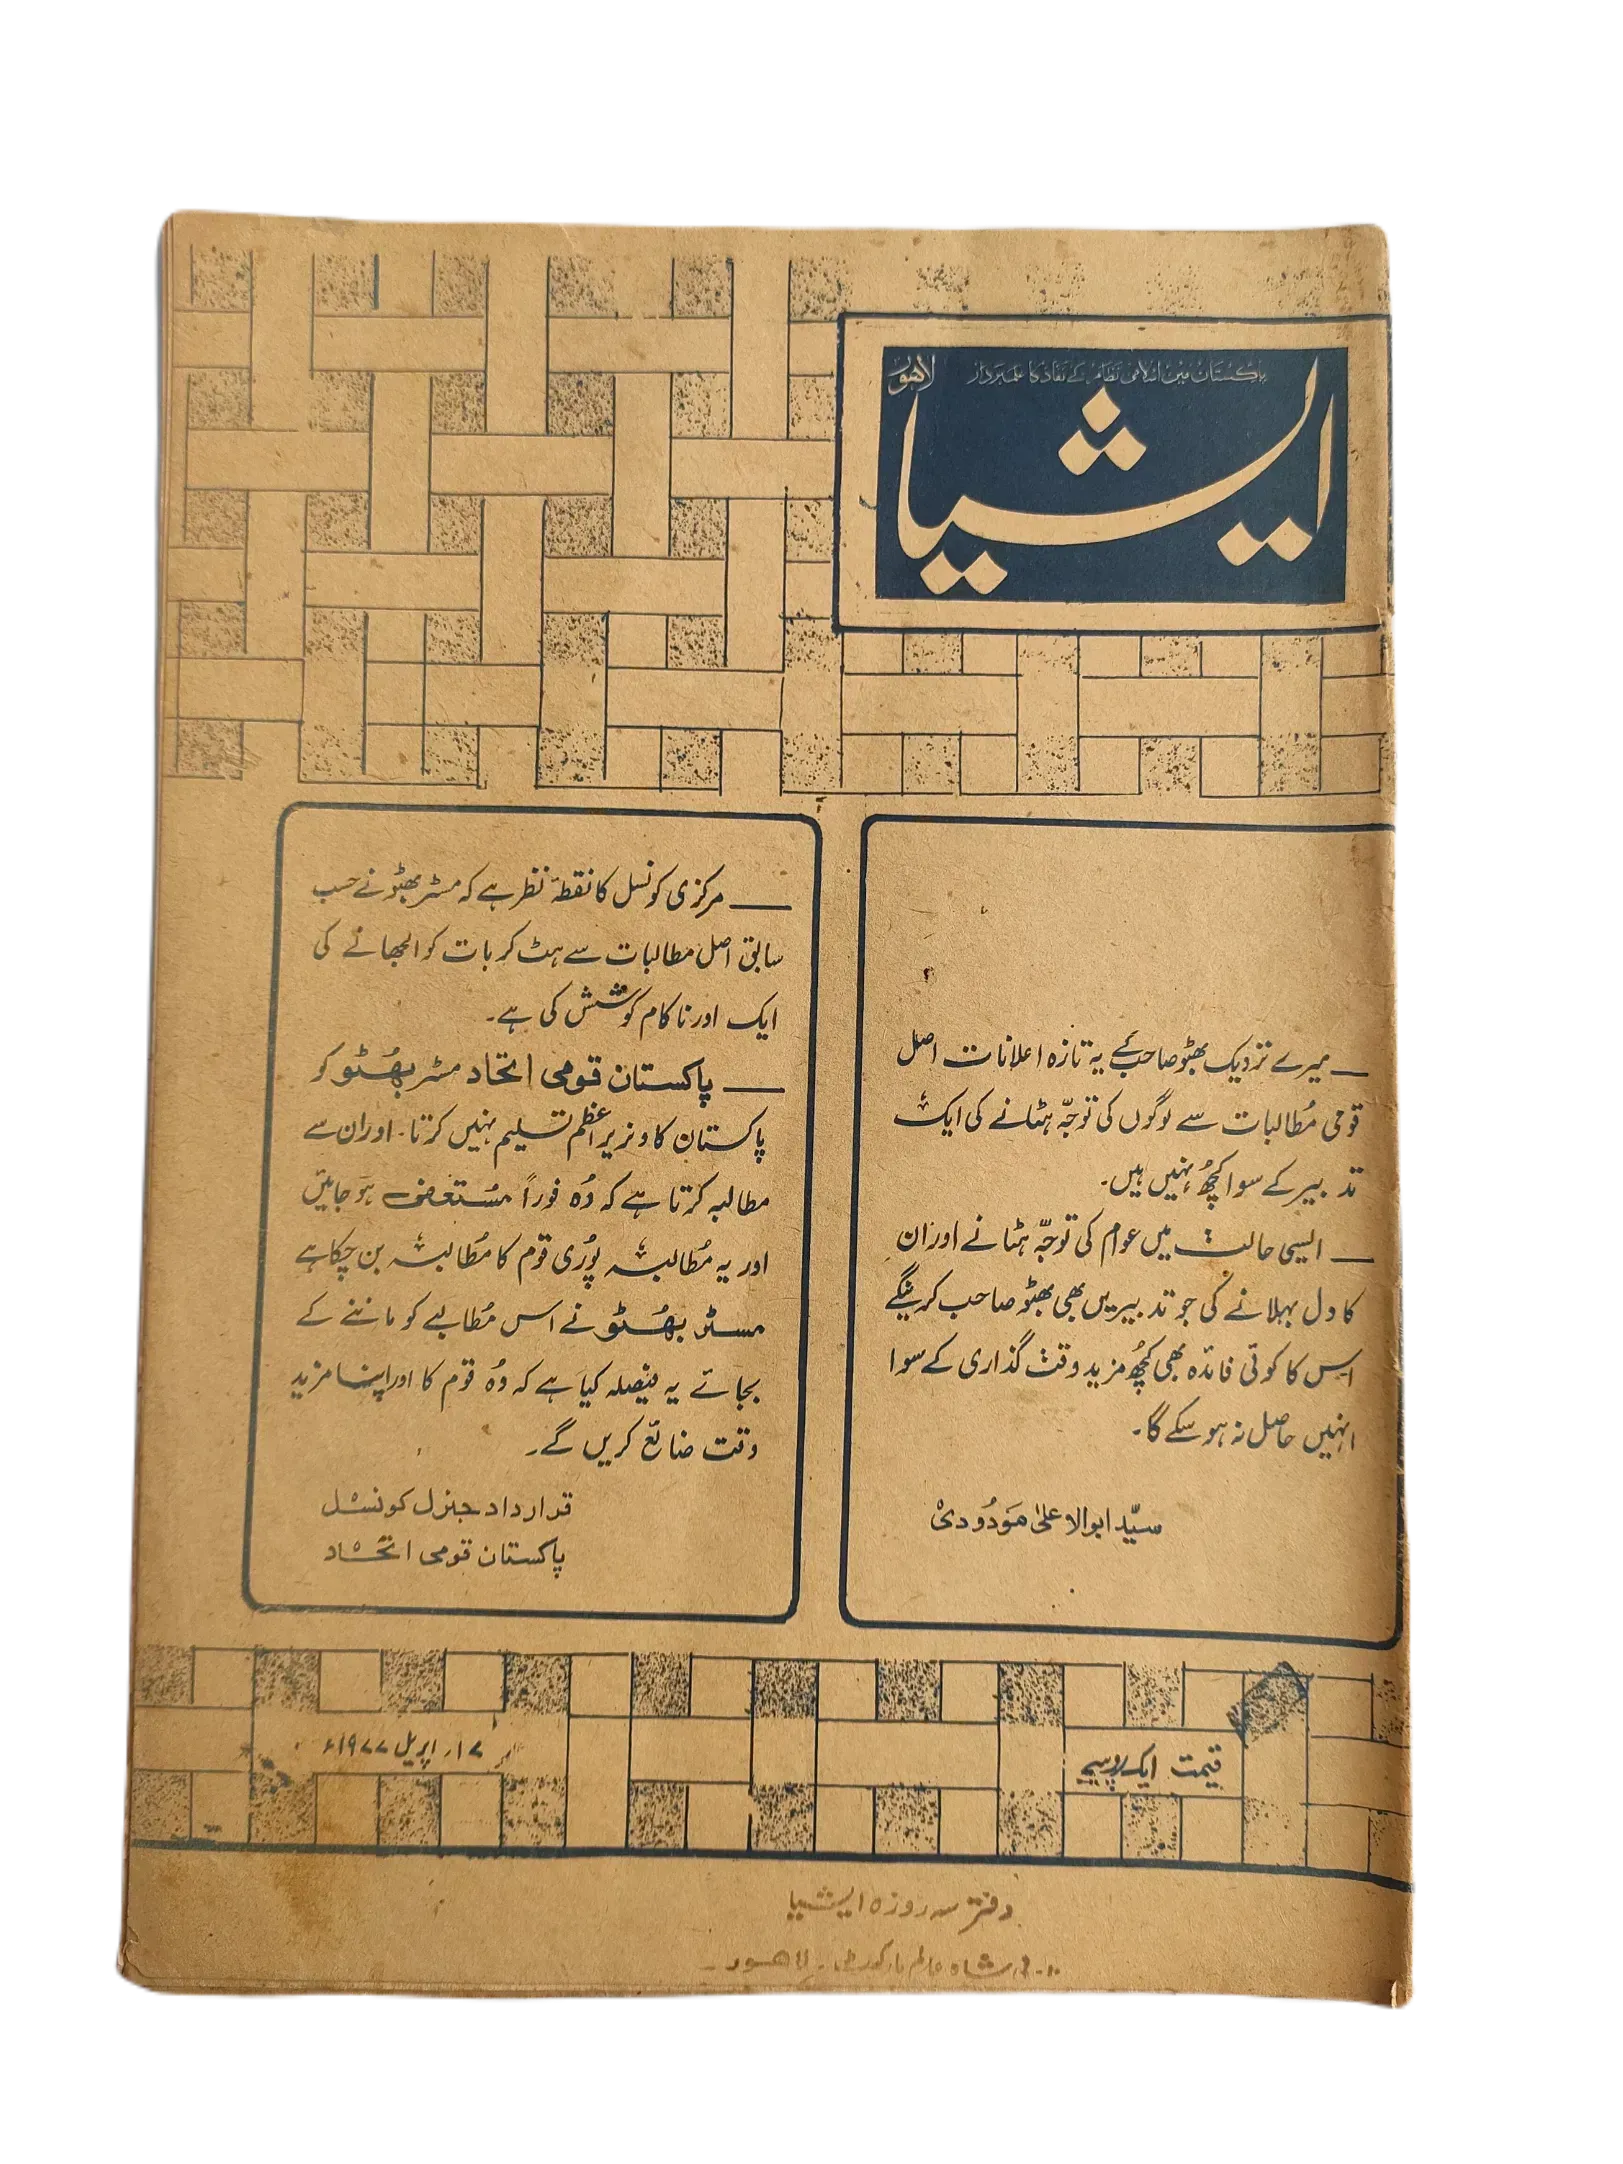 پاکستان میں اسلامی نظام کے نفاذ کا علمبردار
لاہور
ایشیا
— میرے نزدیک بھٹو صاحب کے یہ تازہ اعلانات اصل
قومی مُطالبات سے لوگوں کی توجّہ ہٹانے کی ایک
تدبیر کے سوا کچُھ نہیں ہیں۔
— ایسی حالت میں عوام کی توجّہ ہٹانے اور ان
کا دل بہلانے کی جو تدبیریں بھی بھٹو صاحب کرینگے
اس کا کوئی فائدہ بھی کچُھ مزید وقت گذاری کے سوا
انہیں حاصل نہ ہو سکے گا۔
سیّد ابوالاعلیٰ مَودُودی
— مرکزی کونسل کا نقطۂ نظر ہے کہ مسٹر بھٹو نے حسب
سابق اصل مطالبات سے ہٹ کر بات کو الجھانے کی
ایک اور ناکام کوشش کی ہے۔
— پاکستان قومی اتحاد مسٹر بھُٹو کو
پاکستان کا وزیر اعظم تسلیم نہیں کرتا۔ اور ان سے
مطالبہ کرتا ہے کہ وُہ فوراً مُستعفی ہو جائیں
اور یہ مُطالبہ پُوری قوم کا مُطالبہ بن چکا ہے
مسٹر بھُٹو نے اس مُطالبے کو ماننے کے
بجائے یہ فیصلہ کیا ہے کہ وُہ قوم کا اور اپنا مزید
وقت ضائع کریں گے۔
قرارداد جنرل کونسل
پاکستان قومی اتحاد
قیمت ایک روپیہ
۱۷؍ اپریل ۱۹۷۷ء
دفتر سہ روزہ ایشیا
شاہ عالم مارکیٹ۔ لاہور۔